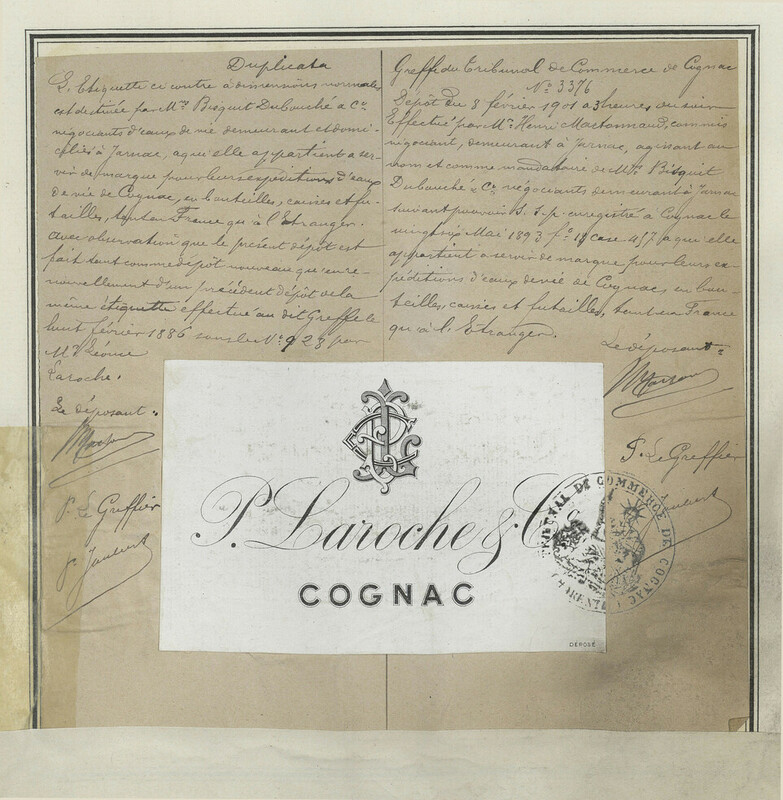 Duplicata
L'Etiquette ci contre à dimensions normales
est destinée par Mrs Bisquit Dubouché & Co
négociants d'eaux de vie demeurant et domi-
ciliés à Jarnac, à qui elle appartient à ser-
vir de marque pour leurs expéditions d'eaux
de vie de Cognac, en bouteilles, caisses et fu-
tailles, tant en France qu'à l'Etranger.
avec observation que le présent dépôt est
fait tant comme dépôt nouveau que en re-
nouvellement d'un précédent dépôt de la
même étiquette effectué au dit Greffe le
huit février 1886 sous le No 928 par
Mr Léonce
Laroche.
Le déposant.
P. Le Greffier
Greffe du Tribunal de Commerce de Cognac
No 3376
Dépôt du 8 février 1901 à 3 heures du soir
Effectué par Mr Henri Martonnaud, commis
négociant, demeurant à Jarnac, agissant au
nom et comme mandataire de Mrs Bisquit
Dubouché & Co négociants demeurant à Jarnac
suivant pouvoir S. S. p. enregistré à Cognac le
vingt six Mai 1893 fo 19 case 457 à qui elle
appartient à servir de marque pour leurs ex-
péditions d'eaux de vie de Cognac, en bou-
teilles, caisses et futailles, tant en France
qu'à l'Etranger.
Le déposant.
P. Le Greffier
P. Laroche & Co
COGNAC
DÉPOSÉ
TRIBUNAL DE COMMERCE DE COGNAC
CHARENTE